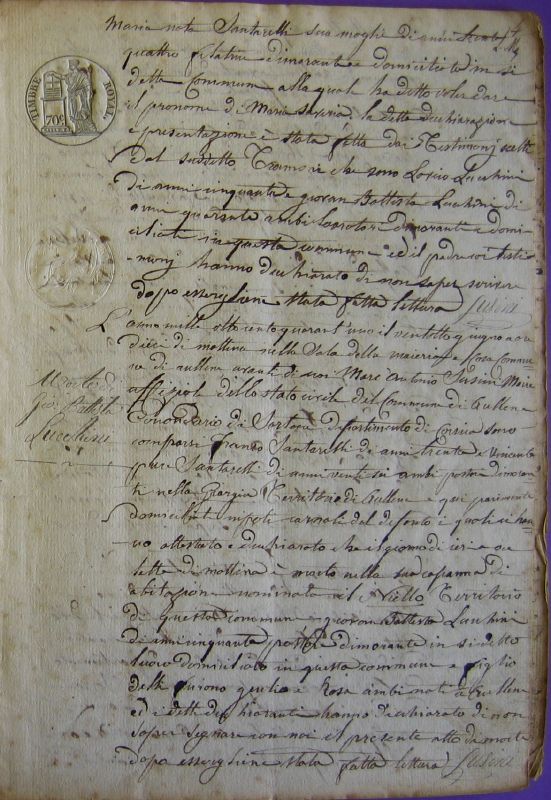 Maria nata Santarelli sua moglie di anni
quattro filatrice dimorante e domiciliata in si
detta Commune alla quale ha detto voler dare
il pronome di Maria Saveria, la detta dichiarazione
e presentazione è stata fatta dai Testimonj scelti
TIMBRE ROYAL
70c
dal suddetto che sono Lucchini
di anni cinquanta e giovan Battista Lucchini di
anni quaranta ambi dimoranti e domi
ciliati in questa commune ed il padre coi testi
monj hanno dichiarato di non saper scrivere
dopo essergliene stata fatta lettura Susini
L'anno mille otto cento quarant'uno il ventotto giugno a ore
dieci di mattina nella Sala della maieria e Casa Commu
ne di aullene avanti di noi Marc Antonio Susini Maire
Morte di
Gio. Battista
Lucchini
uffiziale dello stato civile del Commune di Aullene
Circondario di Sartena dipartimento di Corsica sono
comparsi Santarelli di anni trenta e
Santarelli di anni venti sei ambi pastori dimoran
ti nella Territorio di Aullene e qui parimente
domiciliati nipoti carnali del defonto i quali ci han
no attestato e dichiarato che il giorno di ieri a ore
sette di mattina è morto nella sua capanna di
abitazione nominata il Niello Territorio
di questa commune giovan Battista Lucchini
di anni cinquanta pastore dimorante in si detto
luovo domiciliato in questa commune e figlio
delli furono e Rosa ambi nati a Aullene
ed i detti dichiaranti hanno dichiarato di non
saper segnare con noi il presente atto di morte
dopo essergliene stata fatta lettura Susini